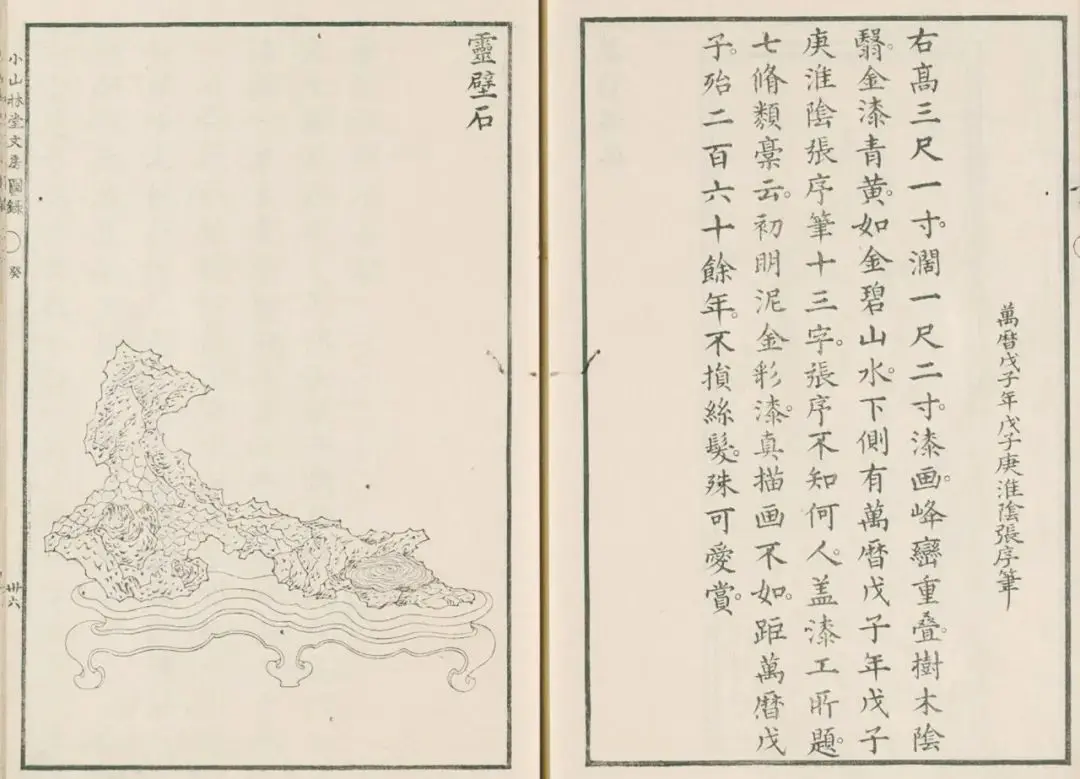 萬暦戊子年戊子庚淮陰張序筆
右高三尺一寸。濶一尺二寸。漆画。峰巒重叠。樹木陰
翳。金漆青黃。如金碧山水。下側有萬暦戊子年戊子
庚淮陰張序筆十三字。張序不知何人。盖漆工所題。
七脩類藁云。初明泥金彩漆。真描画不如。距萬暦戊
子。殆二百六十餘年。不損絲髮。殊可愛賞。
靈壁石
小山林堂文房圖錄
癸
卅六